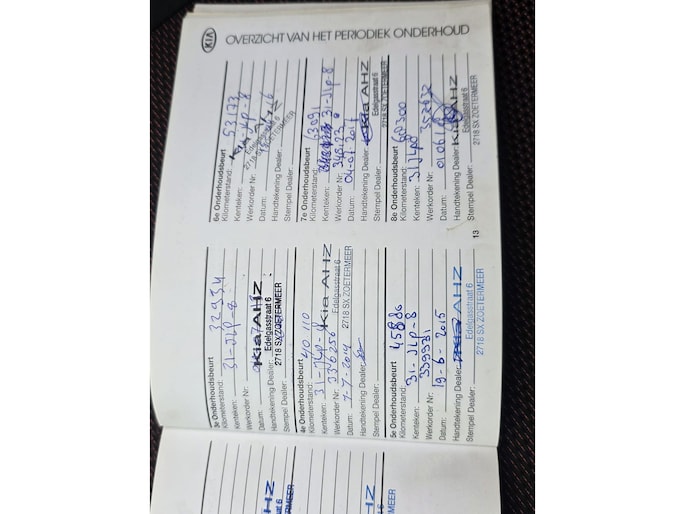 KIA OVERZICHT VAN HET PERIODIEK ONDERHOUD
3e Onderhoudsbeurt
Kilometerstand: 32934
Kenteken: 31-JLP-8
Werkorder Nr:
Datum:
Handtekening Dealer: Kia AHZ
Edelgasstraat 6
Stempel Dealer: 2718 SX ZOETERMEER
4e Onderhoudsbeurt
Kilometerstand: 40 110
Kenteken: 31-JLP-8
Werkorder Nr: 336256 Kia AHZ
Datum: 7-7-2014 Edelgasstraat 6
Handtekening Dealer: 2718 SX ZOETERMEER
Stempel Dealer:
5e Onderhoudsbeurt
Kilometerstand: 45886
Kenteken: 31-JLP-8
Werkorder Nr: 339931
Datum: 19-6-2015
Handtekening Dealer: Kia AHZ
Edelgasstraat 6
Stempel Dealer: 2718 SX ZOETERMEER
6e Onderhoudsbeurt
Kilometerstand: 53173
Kenteken: JLP-8
Werkorder Nr: Kia AHZ
Datum:
Handtekening Dealer: 2718 SX ZOETERMEER
Stempel Dealer:
7e Onderhoudsbeurt
Kilometerstand: 63091
Kenteken: 31-JLP-8
Werkorder Nr:
Datum: 04-07-2017
Handtekening Dealer: Kia AHZ
Edelgasstraat 6
Stempel Dealer: 2718 SX ZOETERMEER
8e Onderhoudsbeurt
Kilometerstand: 300
Kenteken: 31JLP8
Werkorder Nr: 352632
Datum: 010618
Handtekening Dealer: Kia AHZ
Edelgasstraat 6
Stempel Dealer: 2718 SX ZOETERMEER
13
AHZ
6
ERMEER
HZ
MEER